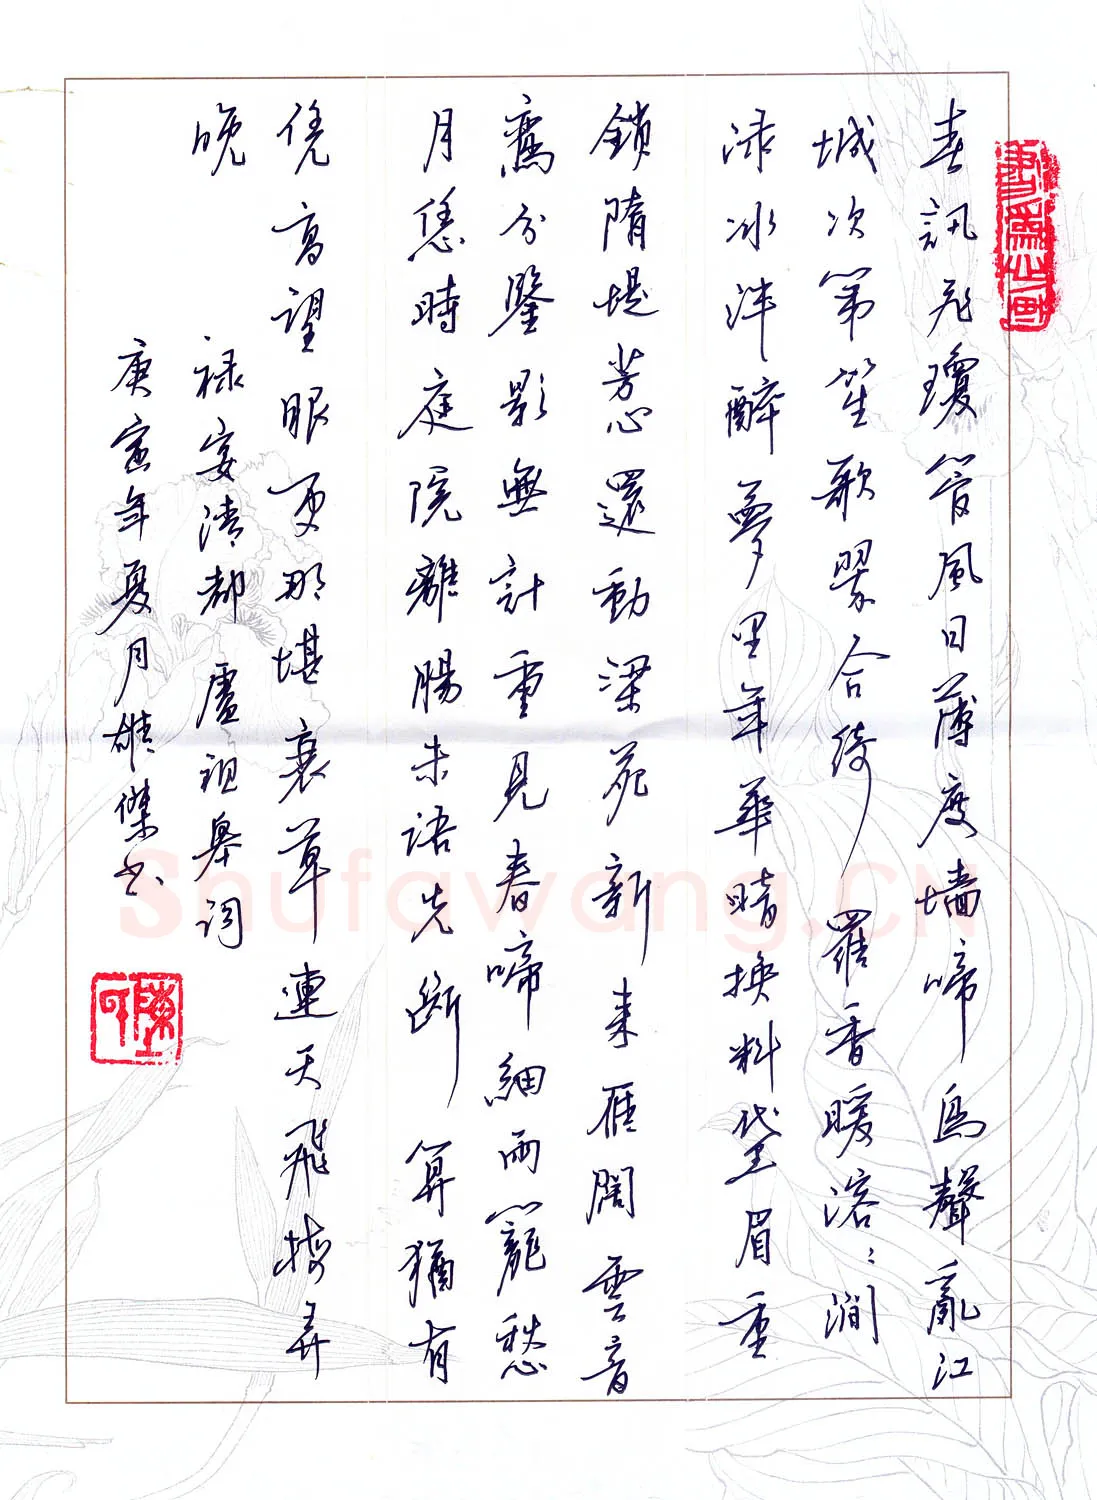 春訊飛瓊管風日薄度墙啼鳥聲亂江
城次第笙歌翠合綺羅香暖溶溶澗
渌冰泮醉夢里年華暗換料黛眉重
鎖隋堤芳心還動梁苑新来雁闊雲音
鸞分鑒影無計重見春啼細雨籠愁
月恁時庭院離腸未語先斷算猶有
凭高望眼更那堪衰草連天飛梅弄
晚
禄宴清都 盧祖皋詞
庚寅年夏月雄傑书
Shufawang.CN